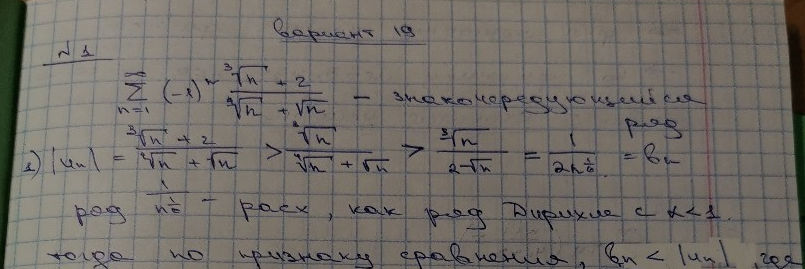 вариант 19
№1
∞ ∑ n=1 (-1)ⁿ (∛n + 2)/(∜n + √n) - знакочередующийся ряд
1) |uₙ| = (∛n + 2)/(∜n + √n) > ∛n/(∜n + √n) > ∛n/(2√n) = 1/(2n^(1/6)) = bₙ
ряд 1/n^(1/6) - расх, как ряд Дирихле с α<1.
тогда по признаку сравнения, bₙ < |uₙ|, где